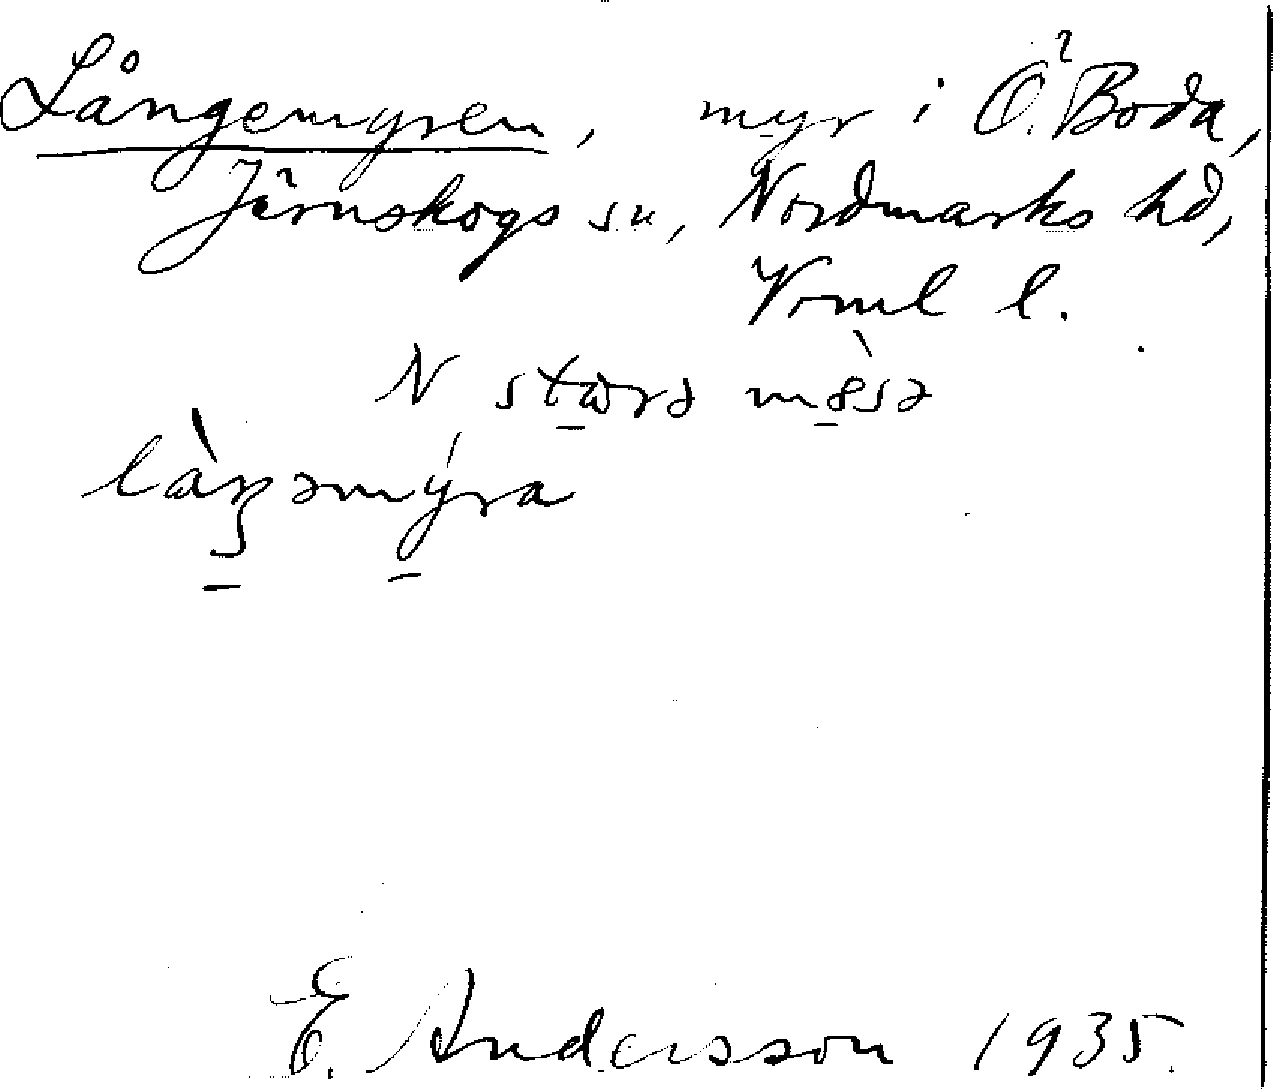 Långemyren, myr i Ö. Boda,
Järnskogs sn, Nordmarks hd,
Vrml l.
N stærə m
myra
E. Andersson 1935.